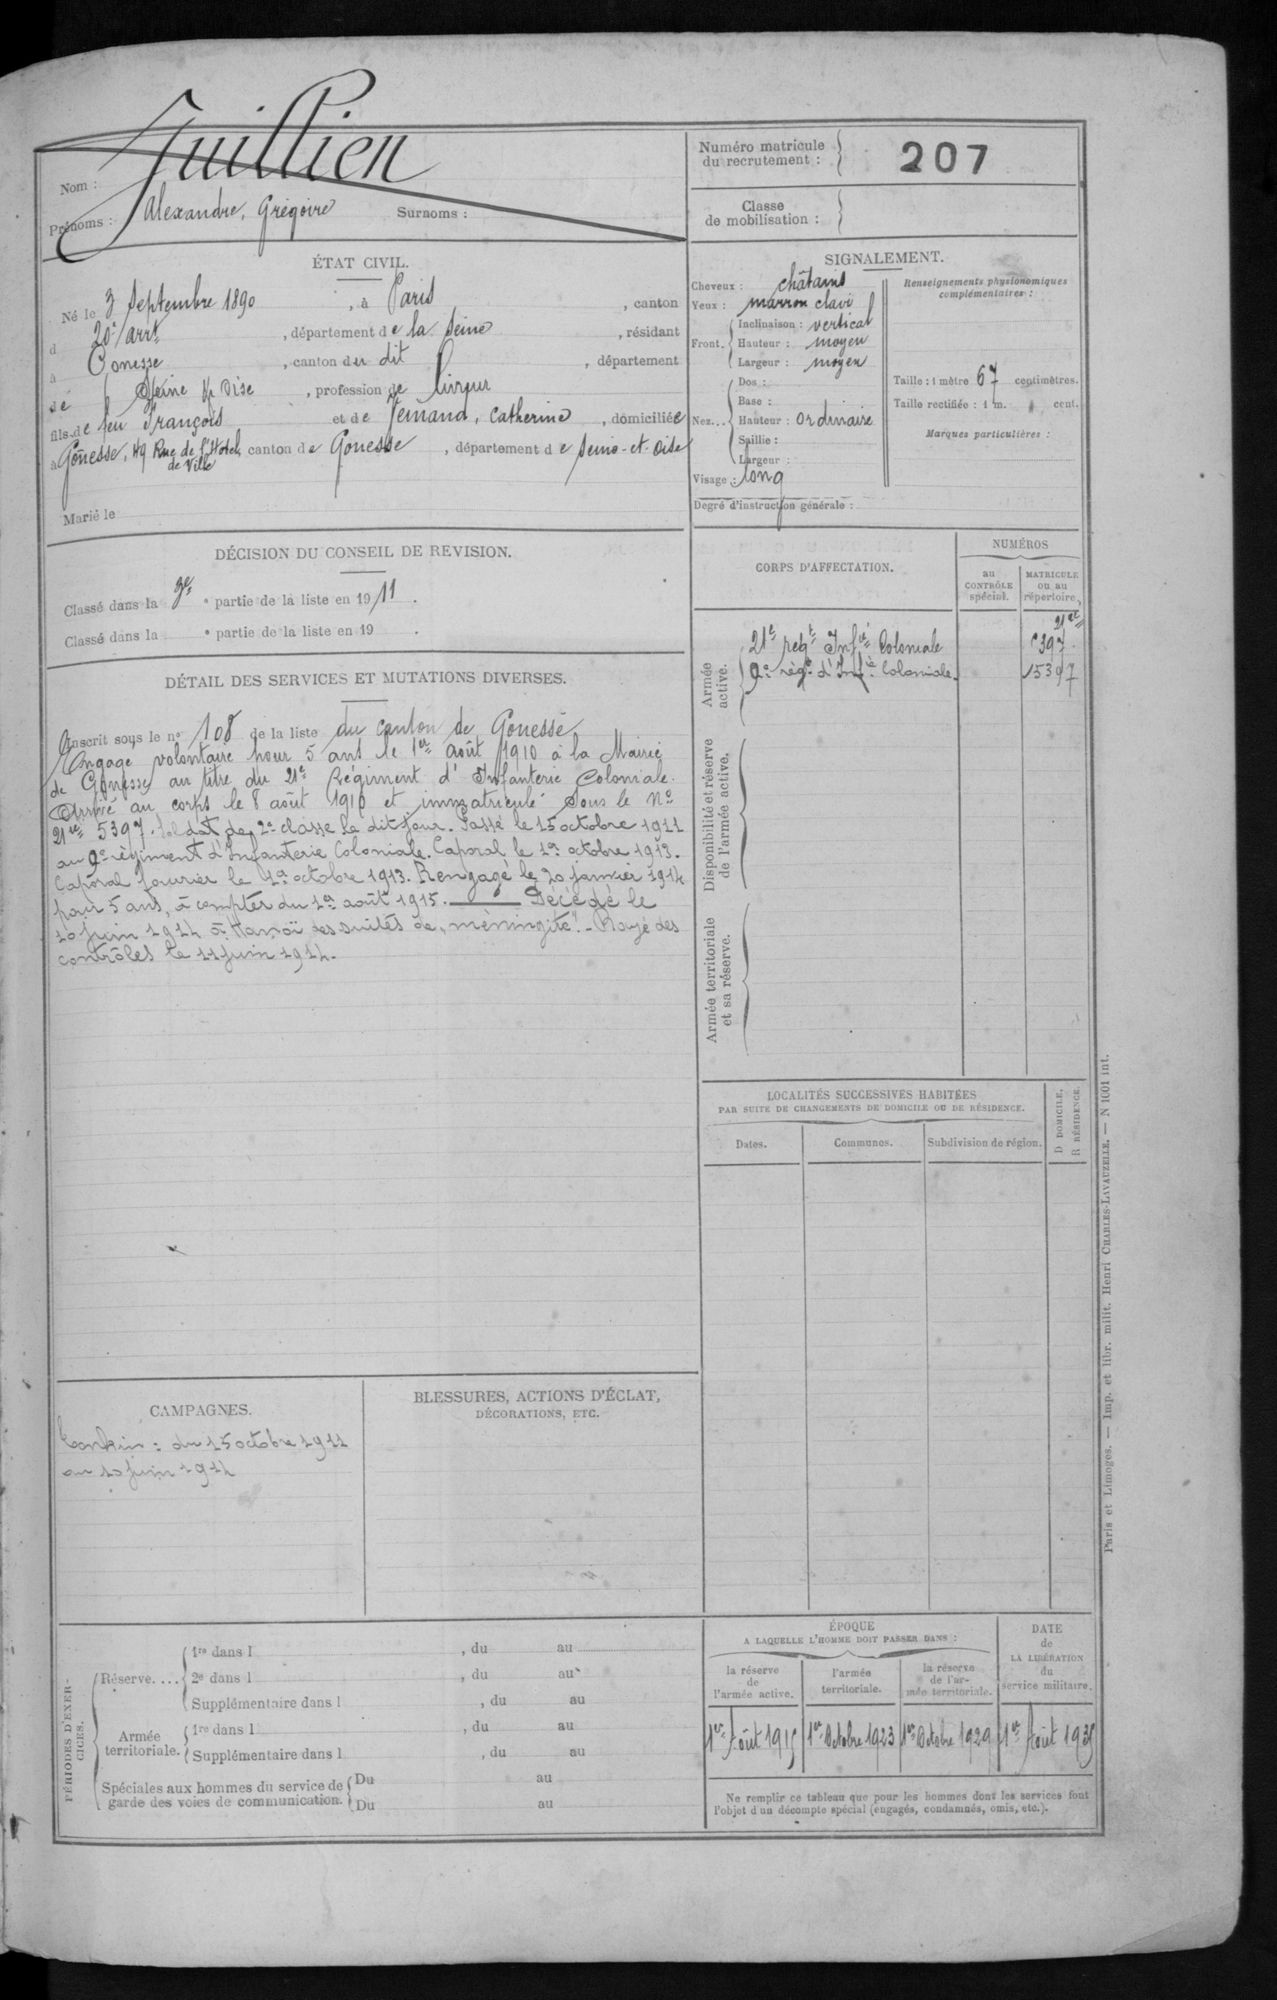 Nom : Juillien
Prénoms : Alexandre, Grégoire Surnoms :
Numéro matricule
du recrutement : 207
Classe
de mobilisation :
ÉTAT CIVIL.
Né le 3 Septembre 1890, à Paris, canton
d 20e arrt, département de la Seine, résidant
à Gonesse, canton du dit, département
de Seine et Oise, profession de livreur
fils de feu François et de Femand, Catherine, domiciliée
à Gonesse, 49 Rue de l'Hotel de Ville, canton de Gonesse, département de Seine-et-Oise
Marié le
SIGNALEMENT.
Cheveux : châtains
Yeux : marron clair
Front. Inclinaison : vertical
Hauteur : moyen
Largeur : moyen
Nez... Dos :
Base :
Hauteur : Ordinaire
Saillie :
Largeur :
Visage : long
Degré d'instruction générale :
Renseignements physionomiques
complémentaires :
Taille : 1 mètre 67 centimètres.
Taille rectifiée : 1 m. cent.
Marques particulières :
DÉCISION DU CONSEIL DE REVISION.
Classé dans la 3e partie de la liste en 1911.
Classé dans la e partie de la liste en 19 .
DÉTAIL DES SERVICES ET MUTATIONS DIVERSES.
Inscrit sous le no 108 de la liste du canton de Gonesse
Engagé volontaire pour 5 ans le 1er août 1910 à la Mairie
de Gonesse au titre du 21e Régiment d'Infanterie Coloniale.
Arrivé au corps le 8 août 1910 et immatriculé sous le No
21ec 5397. Soldat de 2e classe le dit jour. Passé le 15 octobre 1911
au 9e régiment d'Infanterie Coloniale. Caporal le 1er octobre 1913.
Caporal fourrier le 1er octobre 1913. Rengagé le 20 janvier 1914
pour 5 ans, à compter du 1er août 1915. — Décédé le
10 juin 1914 à Hanoï des suites de "méningite". - Rayé des
contrôles le 11 juin 1914.
CORPS D'AFFECTATION.
NUMÉROS
au
CONTRÔLE
spécial.
MATRICULE
ou au
répertoire.
Armée
active.
21e régt Infie Coloniale 21ec 5397.
9e régt d'Infie Coloniale. 15397
Disponibilité et réserve
de l'armée active.
Armée territoriale
et sa réserve.
LOCALITÉS SUCCESSIVES HABITÉES
PAR SUITE DE CHANGEMENTS DE DOMICILE OU DE RÉSIDENCE.
Dates.
Communes.
Subdivision de région.
D DOMICILE.
R RÉSIDENCE.
CAMPAGNES.
Tonkin : du 15 octobre 1911
au 10 juin 1914
BLESSURES, ACTIONS D'ÉCLAT,
DÉCORATIONS, ETC.
PÉRIODES D'EXER-
CICES.
Réserve.... 1re dans l , du au
2e dans l , du au
Supplémentaire dans l , du au
Armée
territoriale. 1re dans l , du au
Supplémentaire dans l , du au
Spéciales aux hommes du service de
garde des voies de communication. Du au
Du au
ÉPOQUE
A LAQUELLE L'HOMME DOIT PASSER DANS :
la réserve
de
l'armée active.
l'armée
territoriale.
la réserve
de l'ar-
mée territoriale.
DATE
de
LA LIBÉRATION
du
service militaire.
1er Août 1915 1er Octobre 1923 1er Octobre 1929 1er Août 1935
Ne remplir ce tableau que pour les hommes dont les services font
l'objet d'un décompte spécial (engagés, condamnés, omis, etc.).
Paris et Limoges. — Imp. et libr. milit. Henri CHARLES-LAVAUZELLE. — N 1001 int.